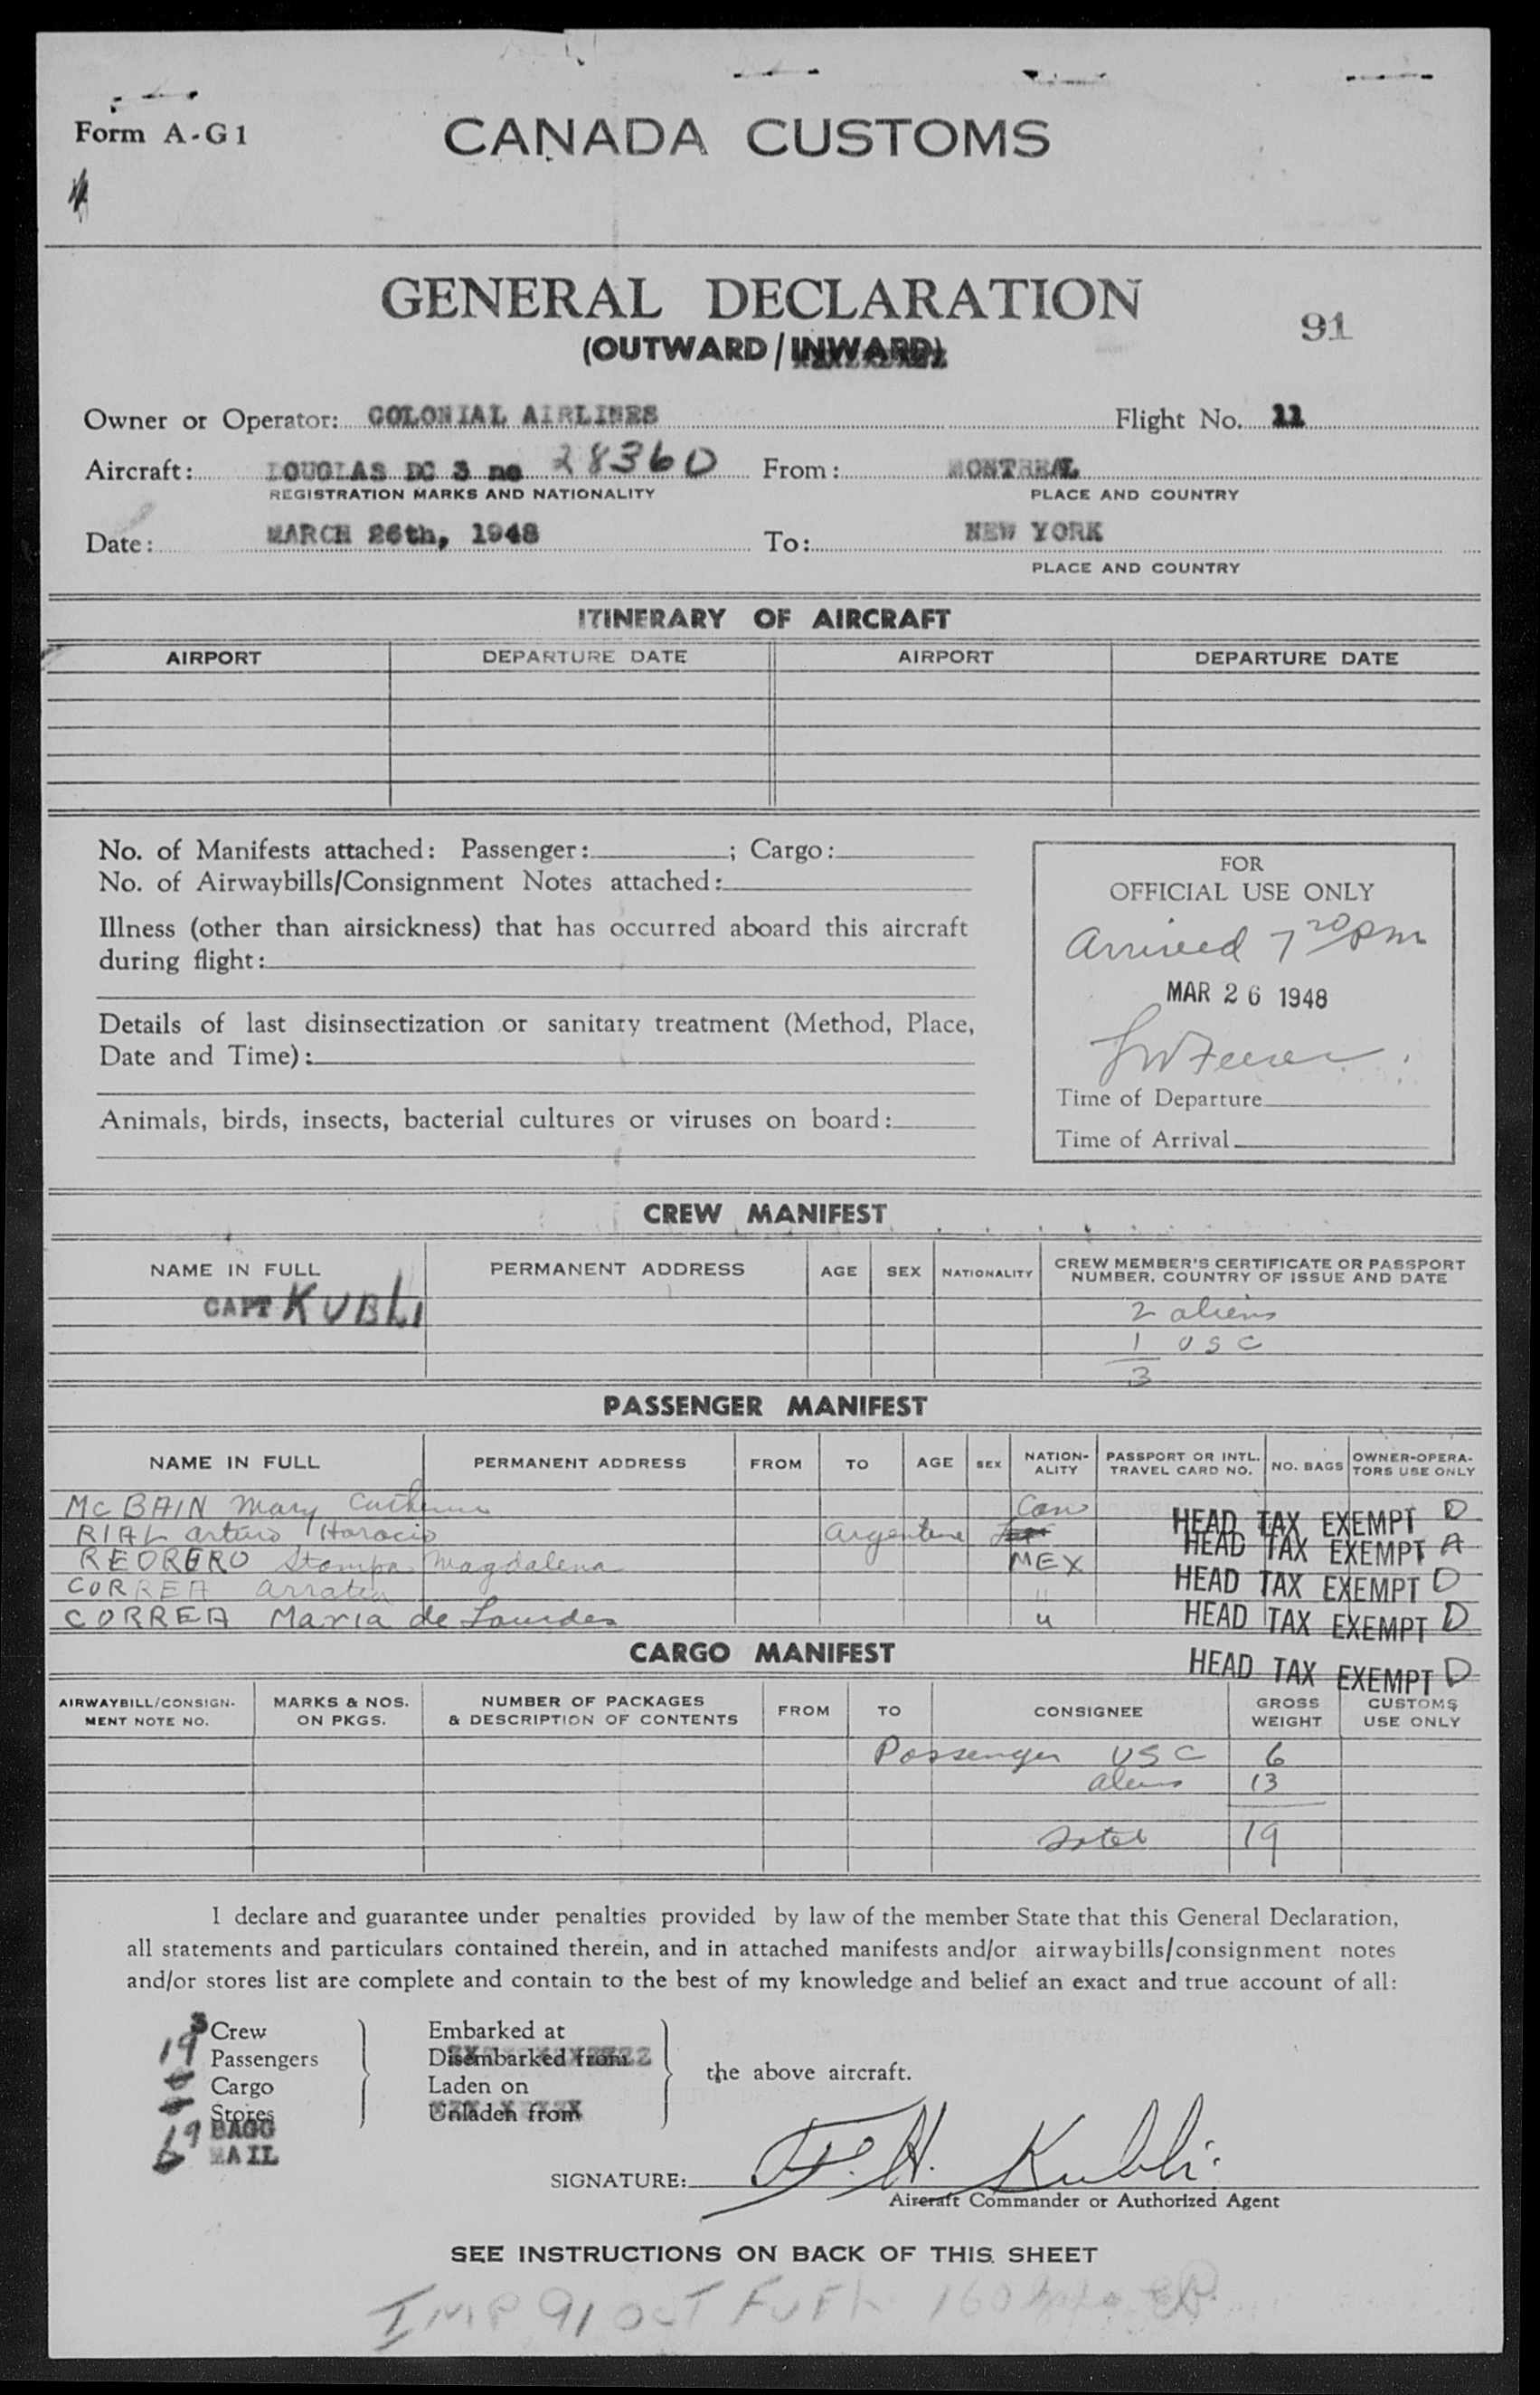 Form A-G1
CANADA CUSTOMS
GENERAL DECLARATION
91
(OUTWARD/INWARD)
Owner or Operator: COLONIAL AIRLINES Flight No. 11
Aircraft: DOUGLAS DC 3 nc 28360 From: MONTREAL
REGISTRATION MARKS AND NATIONALITY PLACE AND COUNTRY
Date: MARCH 26th, 1948 To: NEW YORK
PLACE AND COUNTRY
ITINERARY OF AIRCRAFT
AIRPORT DEPARTURE DATE AIRPORT DEPARTURE DATE
No. of Manifests attached: Passenger: ; Cargo:
No. of Airwaybills/Consignment Notes attached:
Illness (other than airsickness) that has occurred aboard this aircraft
during flight:
Details of last disinsectization or sanitary treatment (Method, Place,
Date and Time):
Animals, birds, insects, bacterial cultures or viruses on board:
FOR
OFFICIAL USE ONLY
Arrived 7 20 pm
MAR 26 1948
Time of Departure
Time of Arrival
CREW MANIFEST
NAME IN FULL PERMANENT ADDRESS AGE SEX NATIONALITY CREW MEMBER'S CERTIFICATE OR PASSPORT
NUMBER, COUNTRY OF ISSUE AND DATE
CAPT KUBLI 2 aliens
1 USC
3
PASSENGER MANIFEST
NAME IN FULL PERMANENT ADDRESS FROM TO AGE SEX NATION-
ALITY PASSPORT OR INTL.
TRAVEL CARD NO. NO. BAGS OWNER-OPERA-
TORS USE ONLY
McBAIN Mary Catherine Can HEAD TAX EXEMPT D
RIAL Arturo Horacio Argentine HEAD TAX EXEMPT A
REORERO Stampa Magdalena MEX HEAD TAX EXEMPT D
CORREA Arratea " HEAD TAX EXEMPT D
CORREA Maria de Lourdes " HEAD TAX EXEMPT D
CARGO MANIFEST
AIRWAYBILL/CONSIGN-
MENT NOTE NO. MARKS & NOS.
ON PKGS. NUMBER OF PACKAGES
& DESCRIPTION OF CONTENTS FROM TO CONSIGNEE GROSS
WEIGHT CUSTOMS
USE ONLY
Passenger USC 6
aliens 13
Total 19
I declare and guarantee under penalties provided by law of the member State that this General Declaration,
all statements and particulars contained therein, and in attached manifests and/or airwaybills/consignment notes
and/or stores list are complete and contain to the best of my knowledge and belief an exact and true account of all:
3 Crew Embarked at
19 Passengers Disembarked from
Cargo Laden on
Stores Unladen from
the above aircraft.
19 BAGG
MAIL
SIGNATURE: F. H. Kubli
Aircraft Commander or Authorized Agent
SEE INSTRUCTIONS ON BACK OF THIS SHEET
IMP 91 OCT